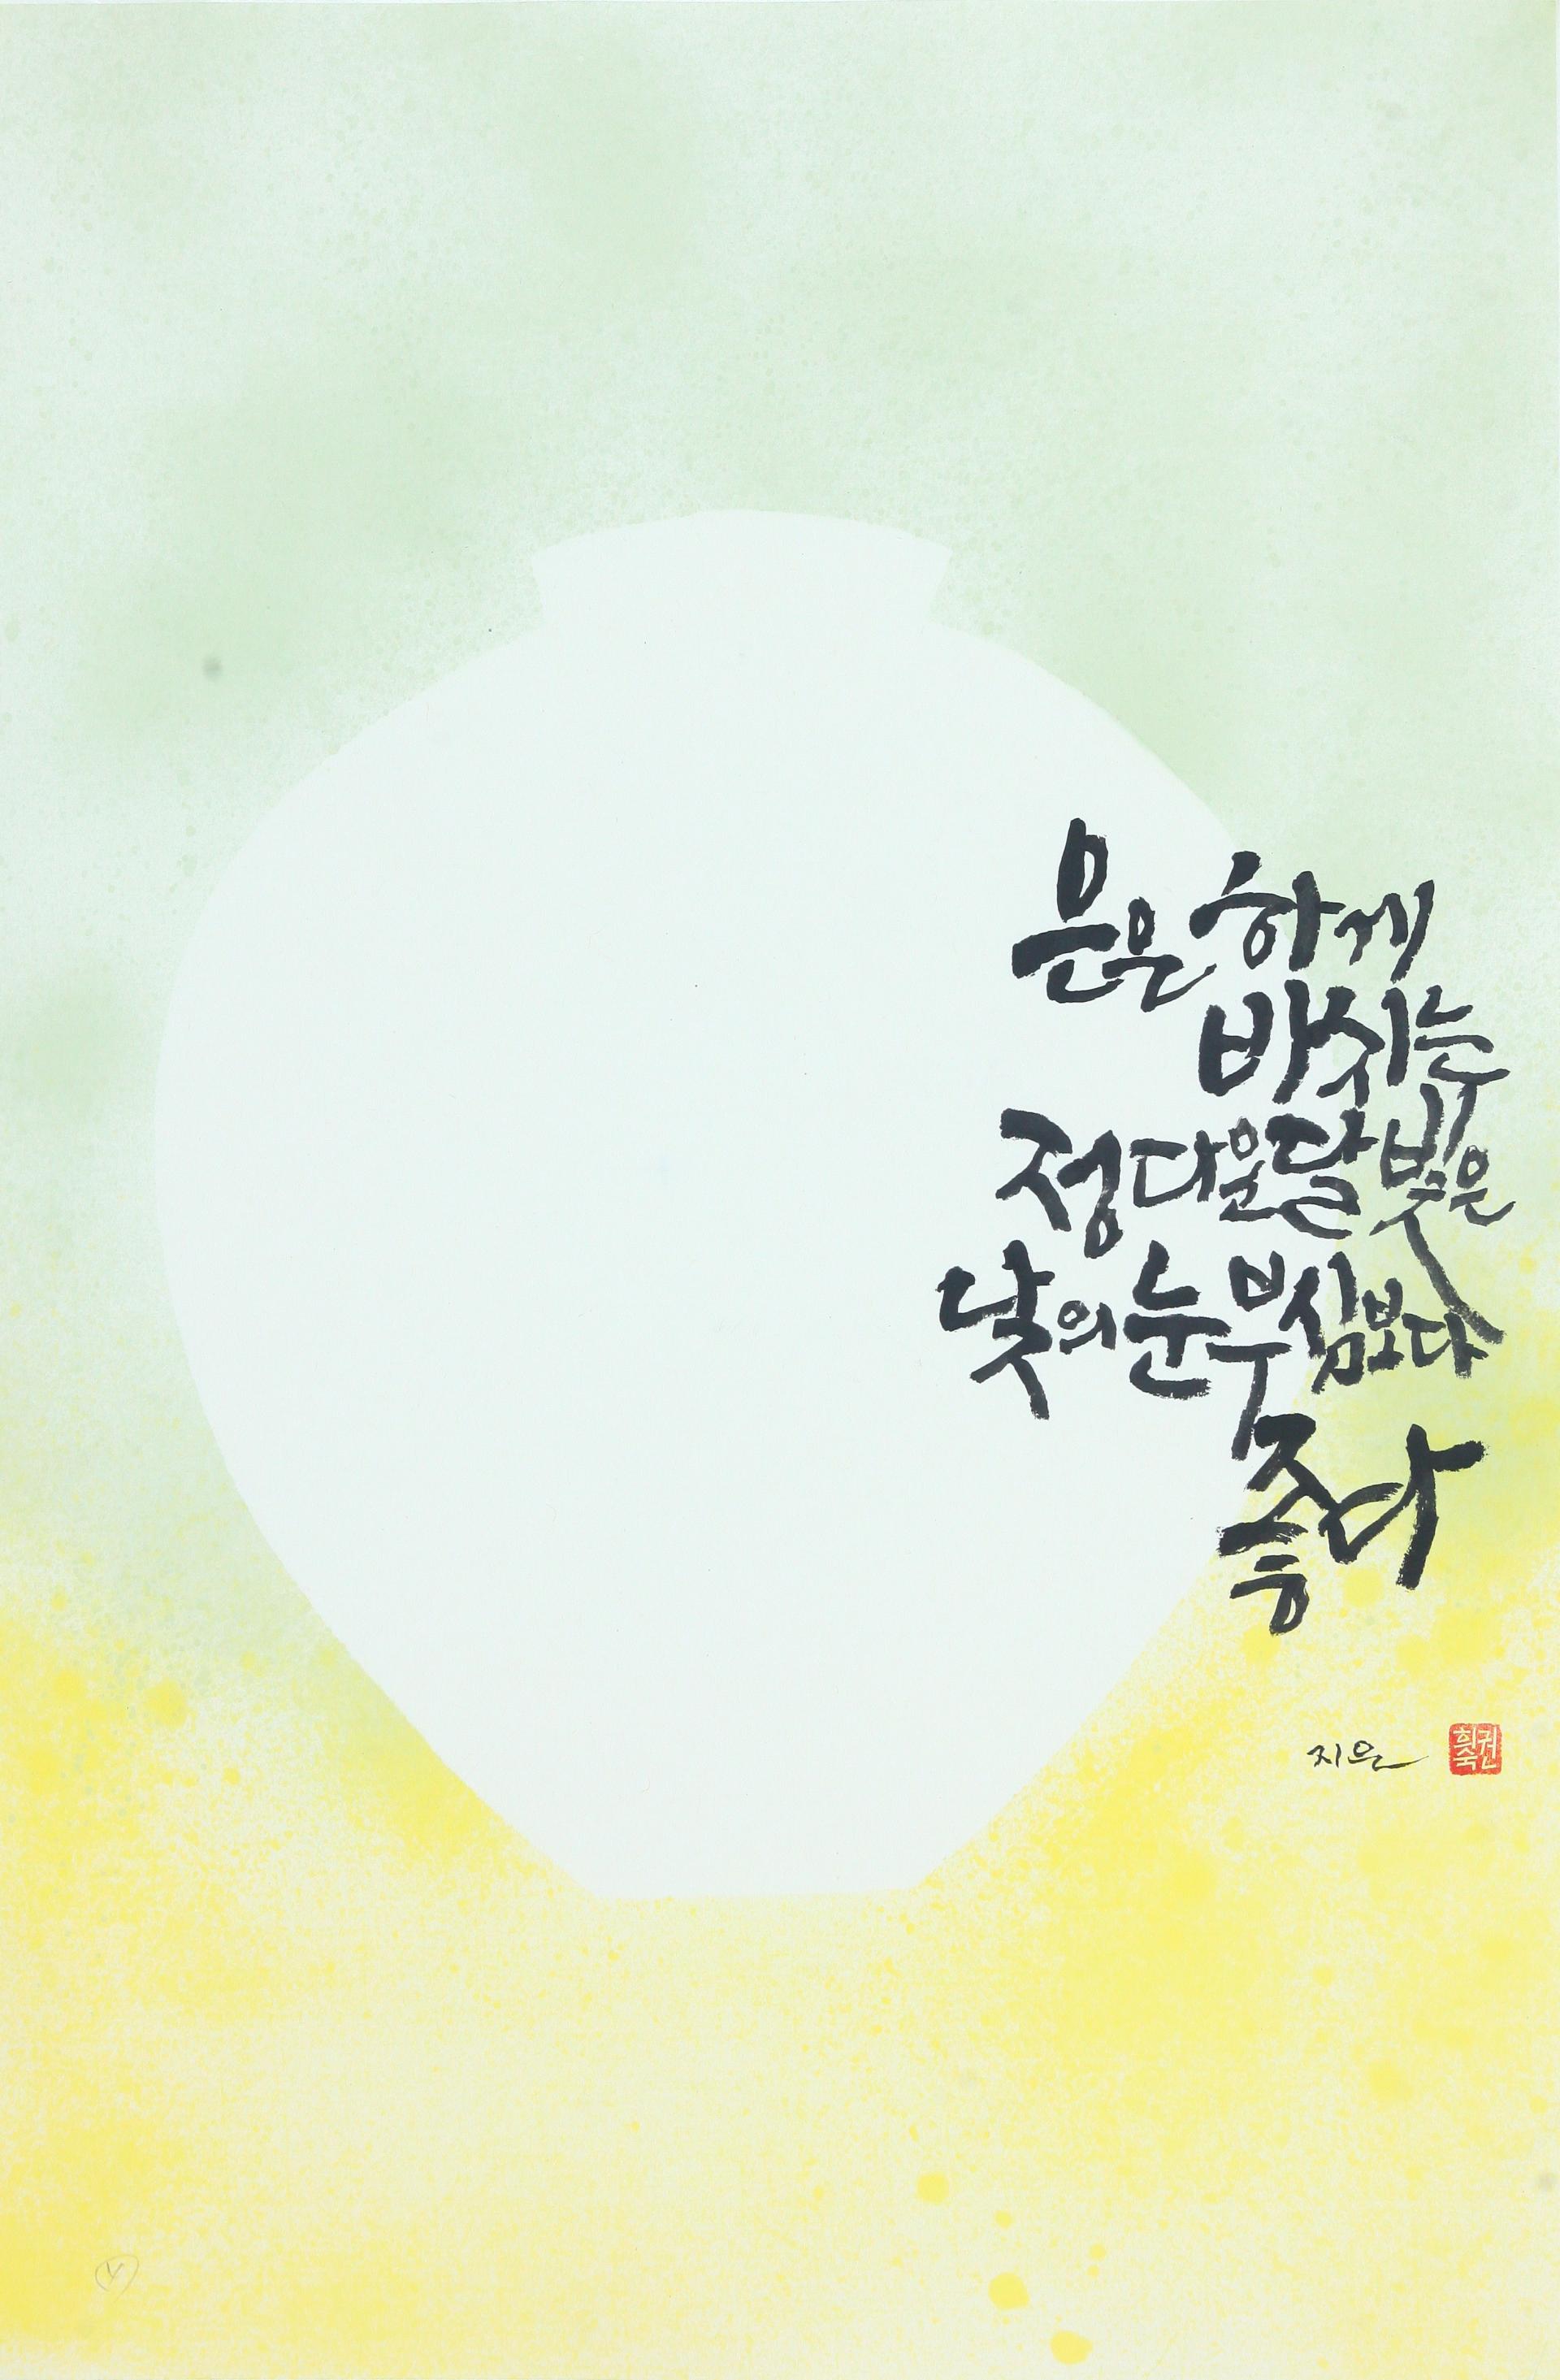 은은하게
비취는
정다운 달빛은
낮의 눈부심보다
좋다
지은
권희숙